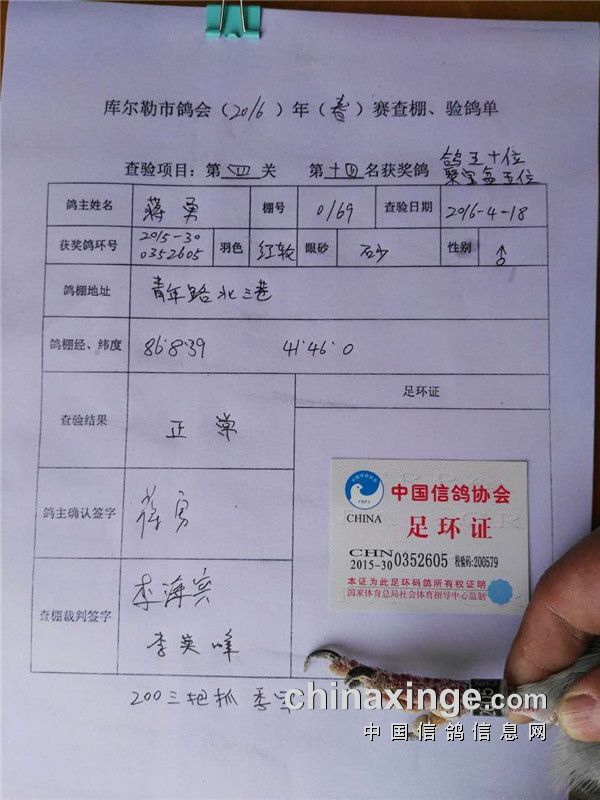 库尔勒市鸽会（2016）年（春）赛查棚、验鸽单
查验项目：第四关 第十四名获奖鸽 鸽王十位
聚宝盆五位
鸽主姓名 蒋勇 棚号 0169 查验日期 2016-4-18
获奖鸽环号 2015-30 0352605 羽色 红轮 眼砂 石少 性别 ♂
鸽棚地址 青年路北三巷
鸽棚经、纬度 86:8:39 41:46:0
查验结果 正常
足环证
鸽主确认签字 蒋勇
查棚裁判签字 李海宾
李英峰
中国信鸽协会
CHINA
足环证
CHN
2015-30 0352605 校验码:200579
本证为此足环码鸽所有权证明
国家体育总局社会体育指导中心监制
200三把抓 季军
chinaxinge.com
中国信鸽信息网